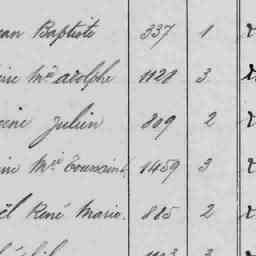 an Baptiste 337 1
ine Mie adolphe 1128 3
eine Julien 809 2
ine Mie Toussaint 1459 3
ël René Marie. 885 2